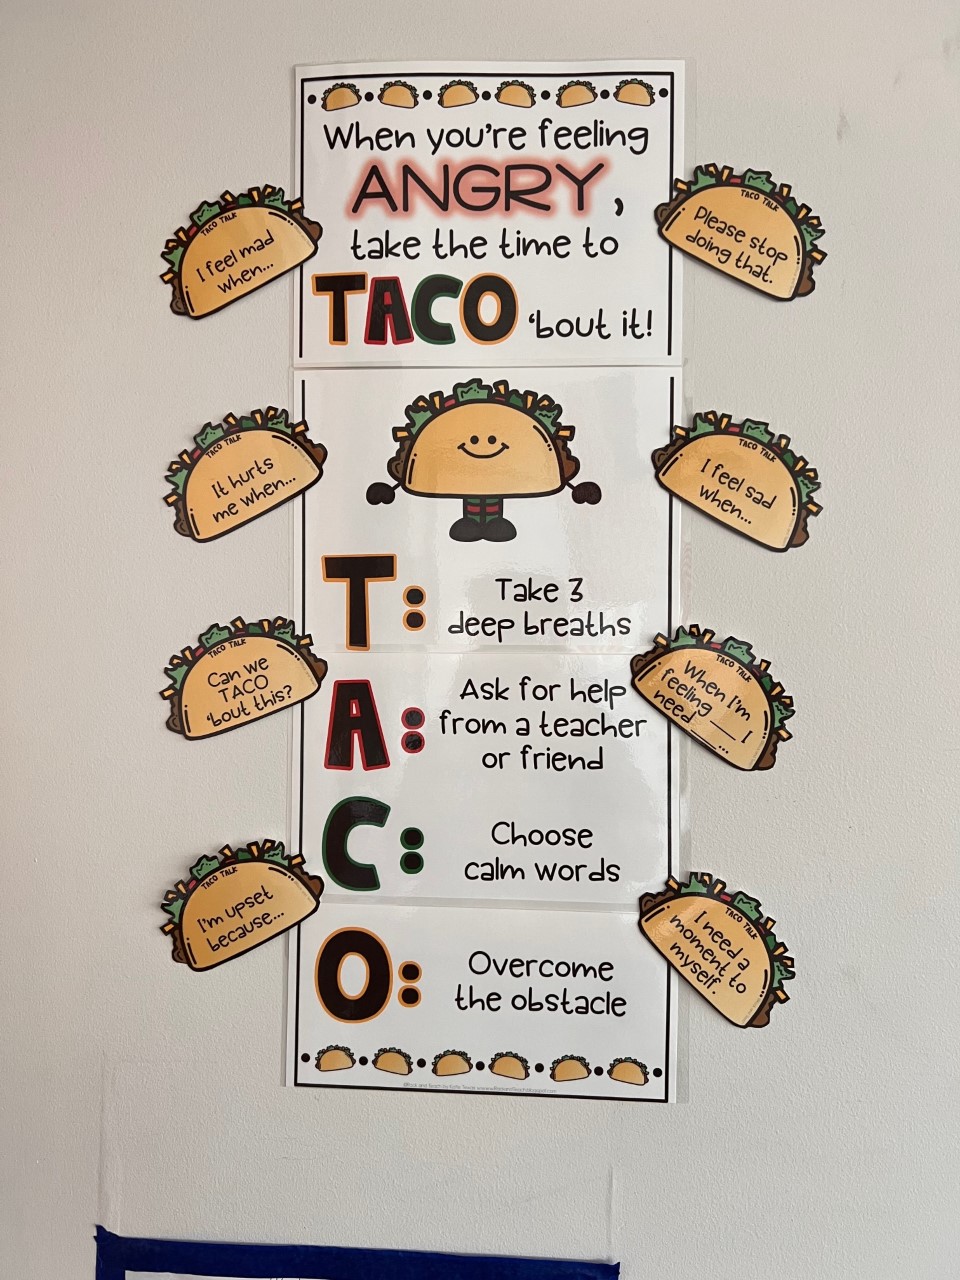 When you're feeling
ANGRY,
take the time to
TACO 'bout it!
T: Take 3
deep breaths
A: Ask for help
from a teacher
or friend
C: Choose
calm words
O: Overcome
the obstacle
TACO TALK
I feel mad
when...
TACO TALK
It hurts
me when...
TACO TALK
Can we
TACO
'bout this?
TACO TALK
I'm upset
because...
TACO TALK
Please stop
doing that.
TACO TALK
I feel sad
when...
TACO TALK
When I'm
feeling ___ I
need ___...
TACO TALK
I need a
moment to
myself.